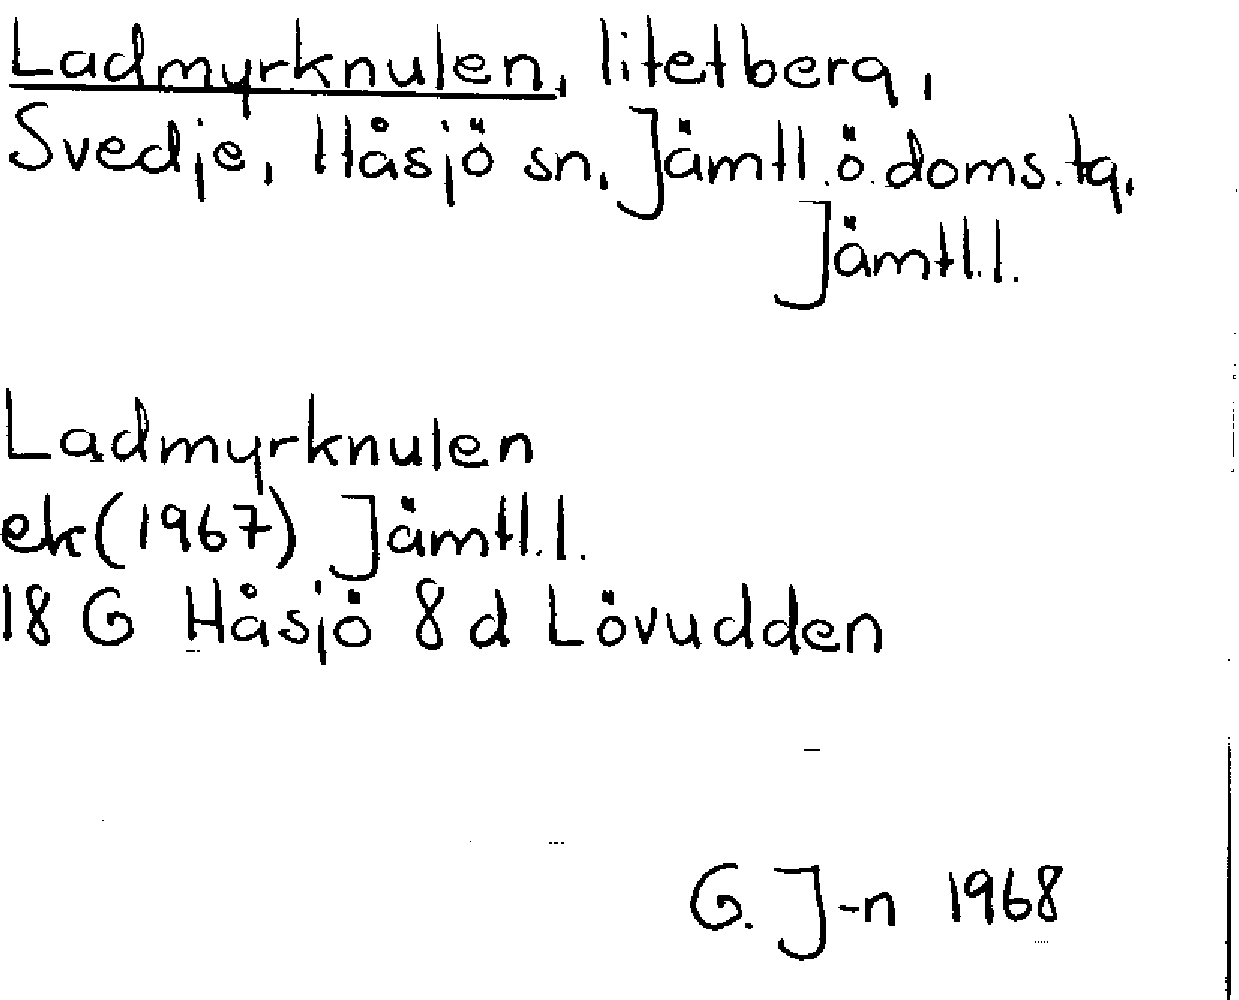 Ladmyrknulen, litet berg,
Svedje, Håsjö sn, Jämtl. ö. doms. tg,
Jämtl. l.
Ladmyrknulen
ek (1967) Jämtl. l.
18 G Håsjö 8 d Lövudden
G. J-n 1968